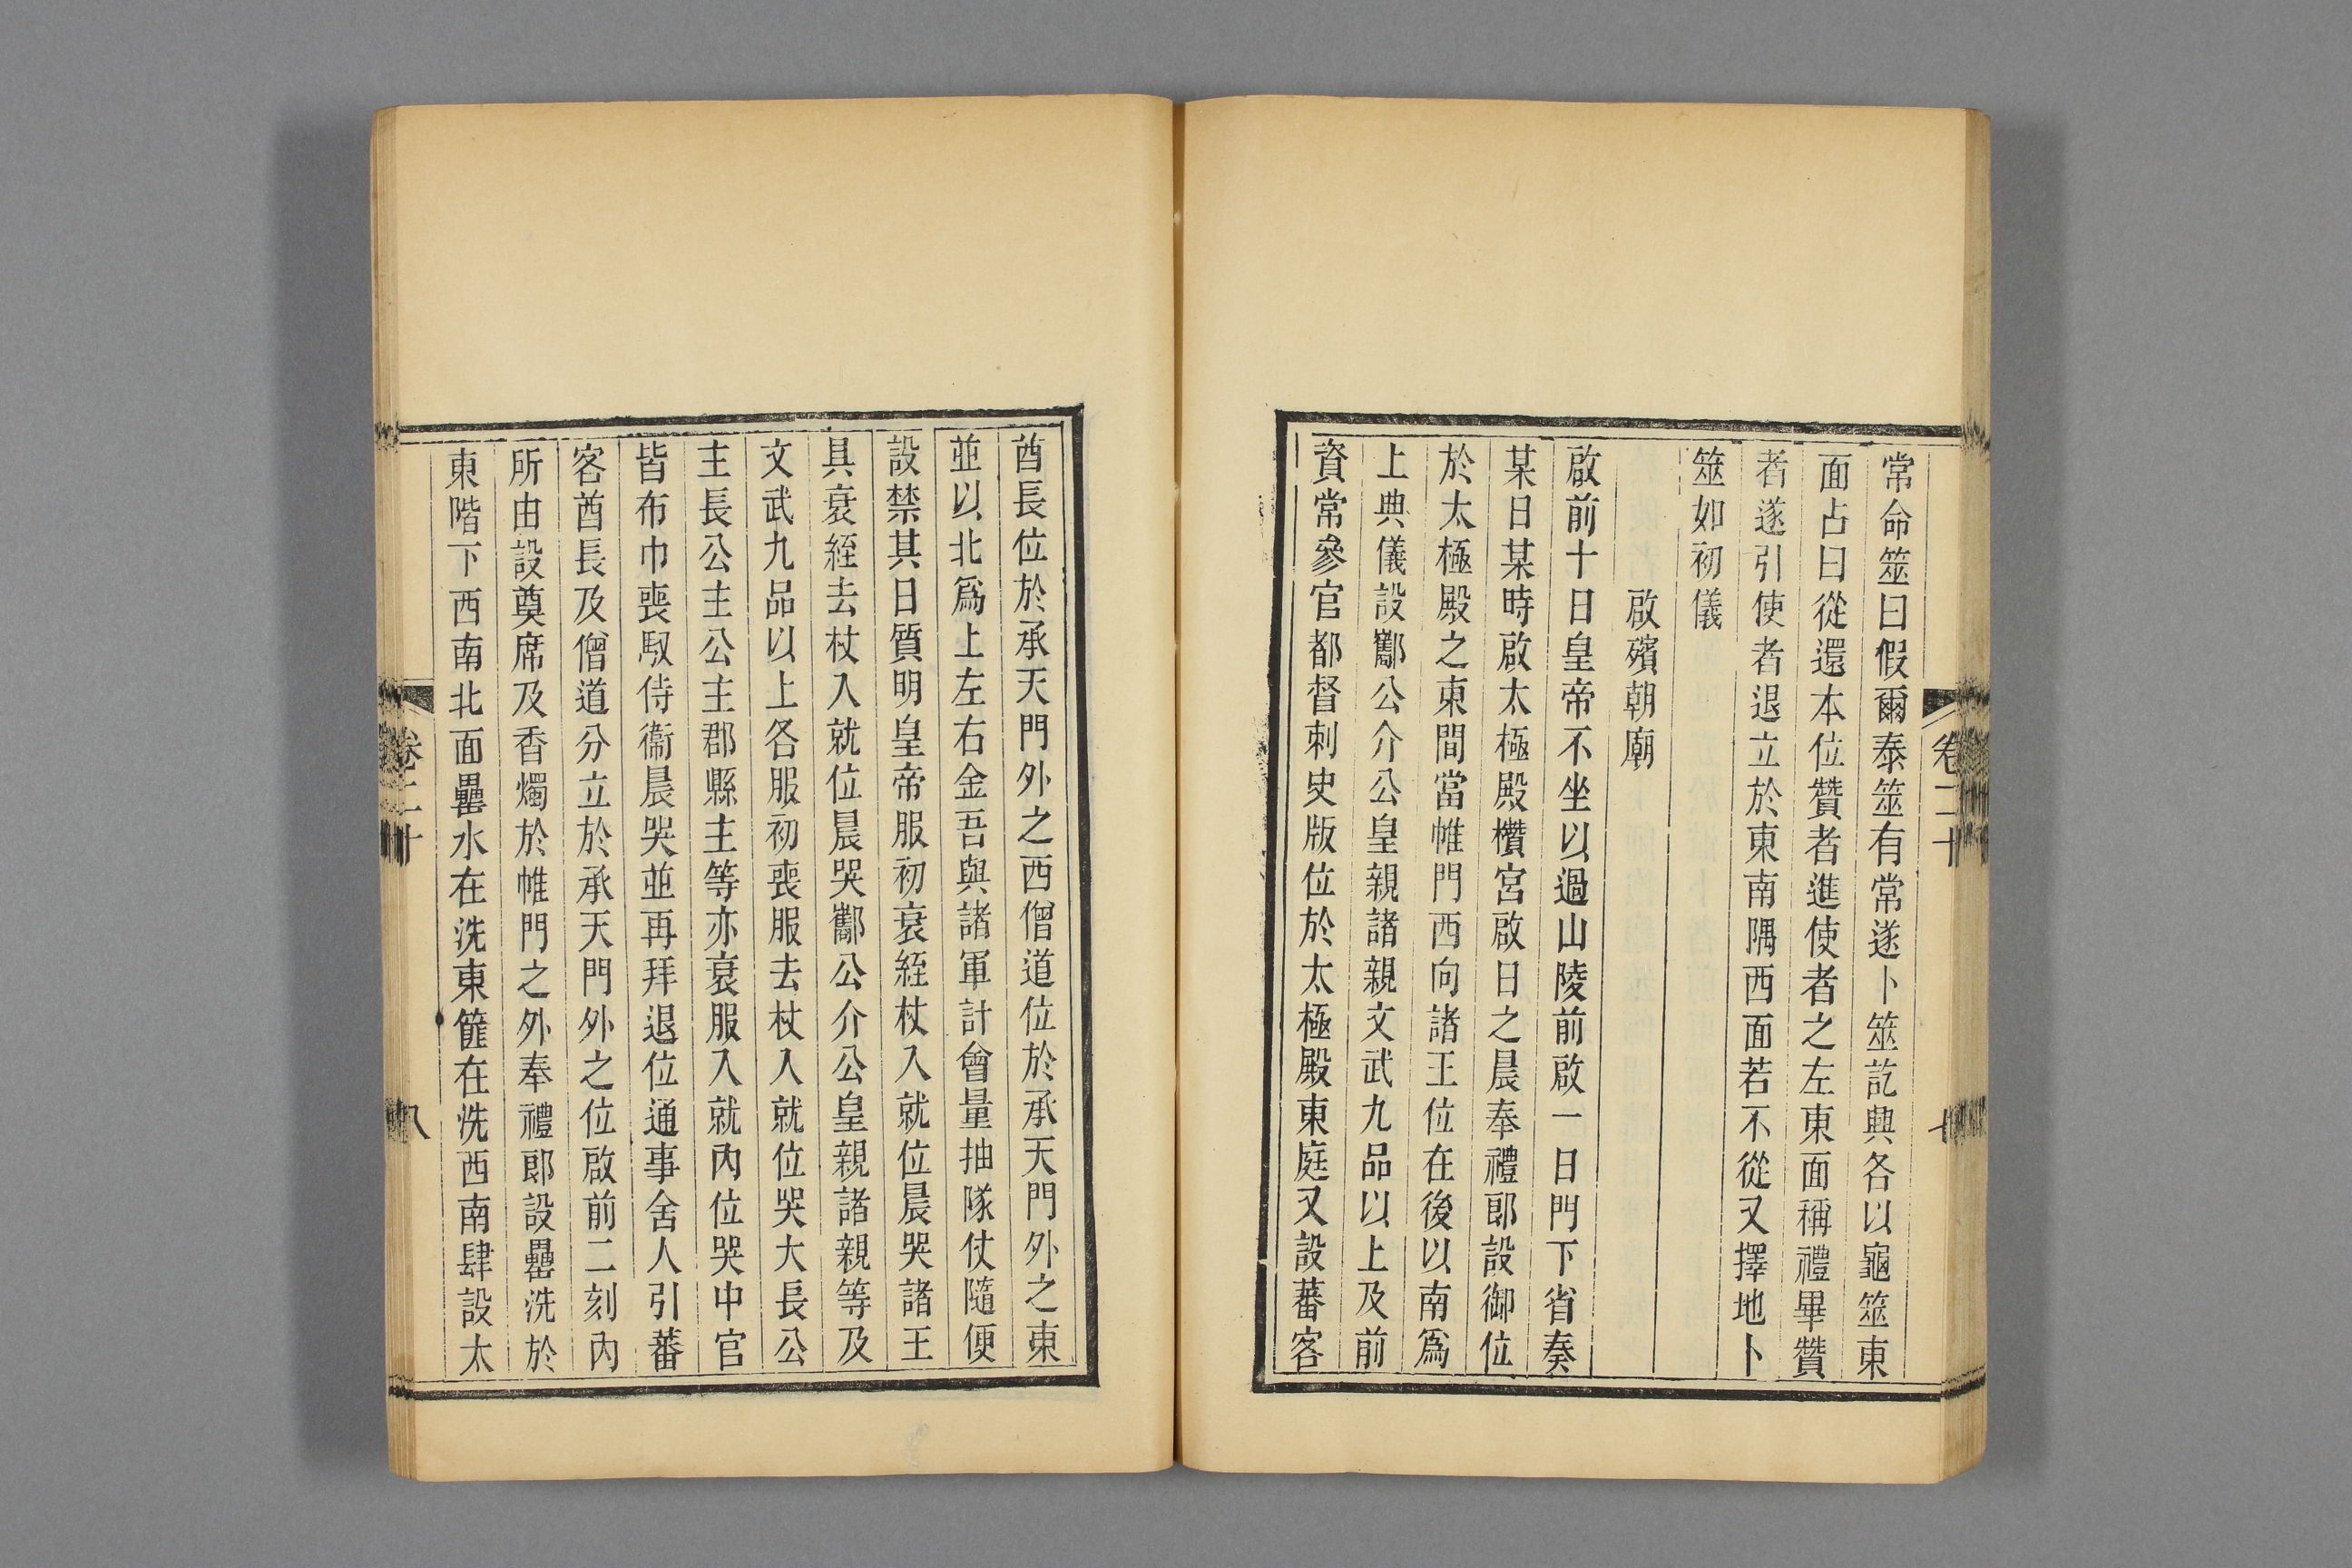 常命筮曰假爾泰筮有常遂卜筮訖興各以龜筮東
面占曰從還本位贊者進使者之左東面稱禮畢贊
者遂引使者退立於東南隅西面若不從又擇地卜
筮如初儀
啟殯朝廟
啟前十日皇帝不坐以過山陵前啟一日門下省奏
某日某時啟太極殿欑宮啟日之晨奉禮郎設御位
於太極殿之東間當帷門西向諸王位在後以南爲
上典儀設酅公介公皇親諸親文武九品以上及前
資常參官都督刺史版位於太極殿東庭又設蕃客
卷二十
酋長位於承天門外之西僧道位於承天門外之東
並以北爲上左右金吾與諸軍計會量抽隊仗隨便
設禁其日質明皇帝服初衰絰杖入就位晨哭諸王
具衰絰去杖入就位晨哭酅公介公皇親諸親等及
文武九品以上各服初喪服去杖入就位哭大長公
主長公主公主郡縣主等亦衰服入就內位哭中官
皆布巾喪馭侍衞晨哭並再拜退位通事舍人引蕃
客酋長及僧道分立於承天門外之位啟前二刻內
所由設奠席及香燭於帷門之外奉禮郎設罍洗於
東階下西南北面罍水在洗東篚在洗西南肆設太
卷二十
八